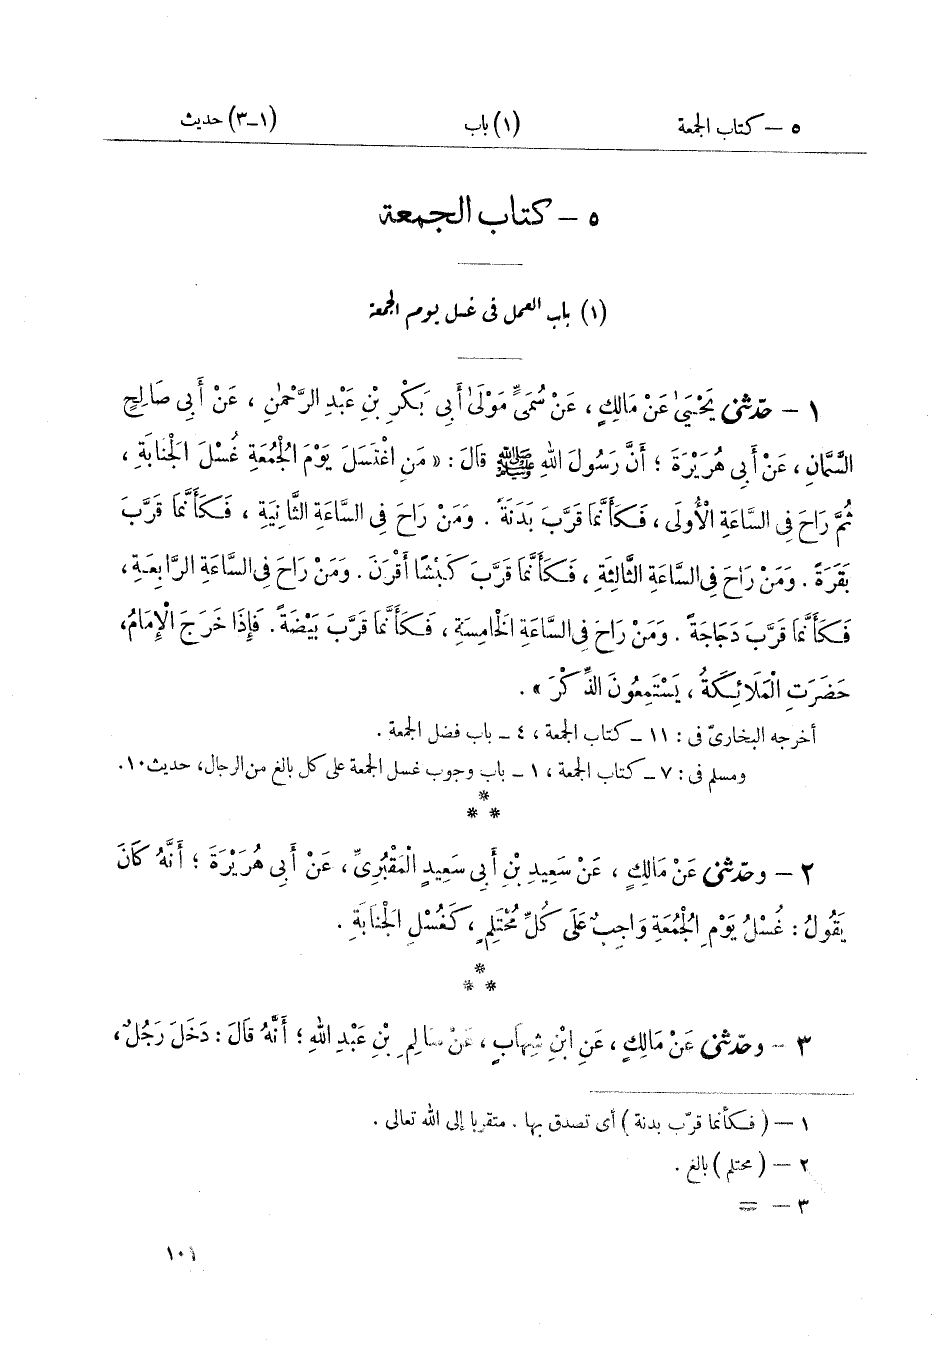 ٥ – كتاب الجمعة (١) باب (١–٣) حديث
٥ – كتاب الجمعة
(١) باب العمل فى غسل يوم الجمعة
١ – حدّثنى يَحْيَىٰ عَنْ مَالِكٍ ، عَنْ سُمَىٍّ مَوْلَىٰ أَبِى بَكْرِ بْنِ عَبْدِ الرَّحْمٰنِ ، عَنْ أَبِى صَالِحٍ
السَّمَّانِ ، عَنْ أَبِى هُرَيْرَةَ ؛ أَنَّ رَسُولَ اللهِ ﷺ قَالَ : « مَنِ اغْتَسَلَ يَوْمَ الْجُمُعَةِ غُسْلَ الْجَنَابَةِ ،
ثُمَّ رَاحَ فِى السَّاعَةِ الْأُولَى ، فَكَأَنَّمَا قَرَّبَ بَدَنَةً . وَمَنْ رَاحَ فِى السَّاعَةِ الثَّانِيَةِ ، فَكَأَنَّمَا قَرَّبَ
بَقَرَةً . وَمَنْ رَاحَ فِى السَّاعَةِ الثَّالِثَةِ ، فَكَأَنَّمَا قَرَّبَ كَبْشًا أَقْرَنَ . وَمَنْ رَاحَ فِى السَّاعَةِ الرَّابِعَةِ ،
فَكَأَنَّمَا قَرَّبَ دَجَاجَةً . وَمَنْ رَاحَ فِى السَّاعَةِ الْخَامِسَةِ ، فَكَأَنَّمَا قَرَّبَ بَيْضَةً . فَإِذَا خَرَجَ الْإِمَامُ ،
حَضَرَتِ الْمَلَائِكَةُ ، يَسْتَمِعُونَ الذِّكْرَ » .
أخرجه البخارىّ فى : ١١ – كتاب الجمعة ، ٤ – باب فضل الجمعة .
ومسلم فى : ٧ – كتاب الجمعة ، ١ – باب وجوب غسل الجمعة على كل بالغ من الرجال ، حديث ١٠ .
*
* *
٢ – وحدّثنى عَنْ مَالِكٍ ، عَنْ سَعِيدِ بْنِ أَبِى سَعِيدٍ الْمَقْبُرِىِّ ، عَنْ أَبِى هُرَيْرَةَ ؛ أَنَّهُ كَانَ
يَقُولُ : غُسْلُ يَوْمِ الْجُمُعَةِ وَاجِبٌ عَلَى كُلِّ مُحْتَلِمٍ ، كَغُسْلِ الْجَنَابَةِ .
*
* *
٣ – وحدّثنى عَنْ مَالِكٍ ، عَنِ ابْنِ شِهَابٍ ، عَنْ سَالِمِ بْنِ عَبْدِ اللهِ ؛ أَنَّهُ قَالَ : دَخَلَ رَجُلٌ ،
١ – ( فكأنما قرّب بدنة ) أى تصدق بها . متقربا إلى الله تعالى .
٢ – ( محتلم ) بالغ .
٣ – =
١٠١